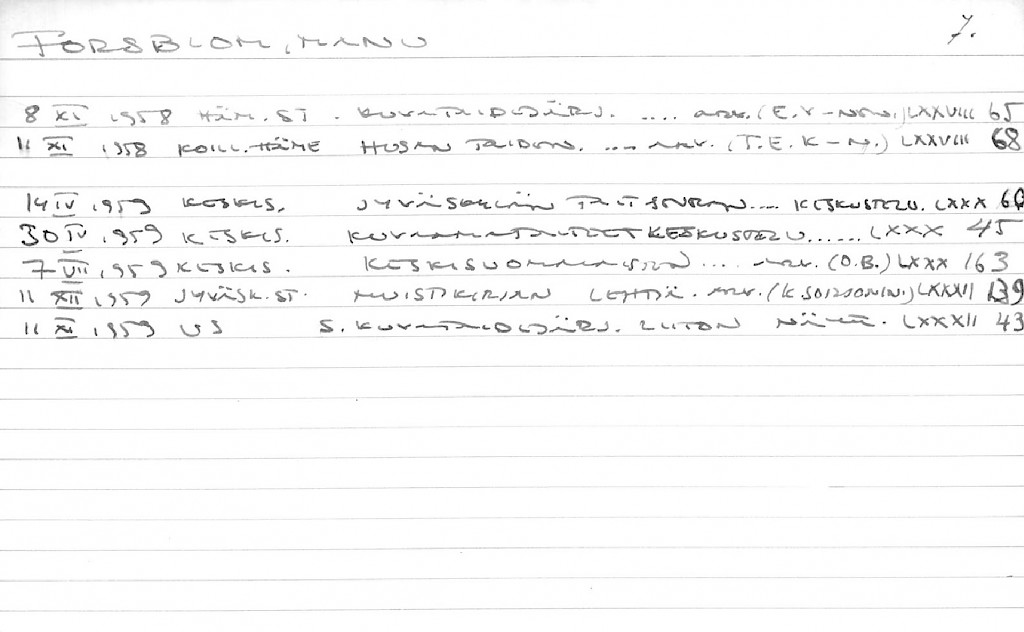 FORSBLOM, MANU 7.
8 XI 1958 HÄM. ST. KUVATAIDEJÄRJ. .... ARV. (E.V-NEN.) LXXVIII 65
11 XI 1958 KOILL. HÄME .... ARV. (T.E.K-N.) LXXVIII 68
14 IV 1959 KESKIS. JYVÄSKYLÄN TAITSEURAN .... KESKUSTELU. LXXX
30 IV 1959 KESKIS. KESKUSTELU ...... LXXX 45
7 VII 1959 KESKIS. KESKISUOMALAISEN .... ARV. (O.B.) LXXX 163
11 XII 1959 JYVÄSK. ST. MUISTIKIRJAN LEHTIÄ. ARV. LXXXII 139
11 XI 1959 US S. KUVATAIDEJÄRJ. LIITON LXXXII 43